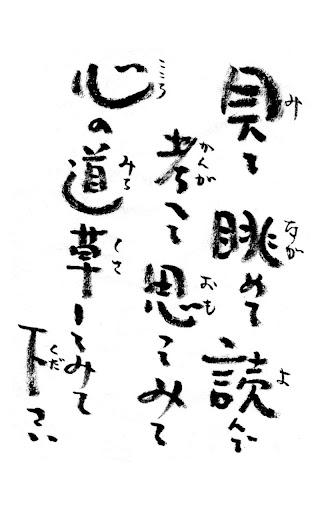 見て 眺めて 読んで
み なが よ
考えて 思ってみて
かんが おも
心の道草してみて
こころ みち くさ
下さい
くだ